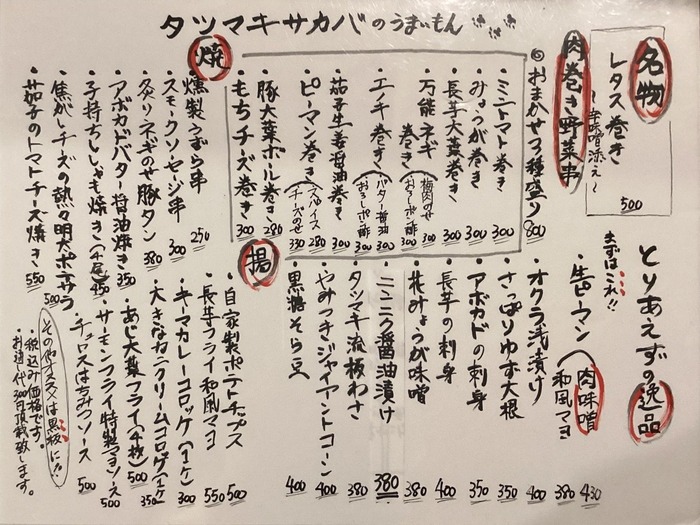 タツマキサカバのうまいもん
名物
レタス巻き
〜辛味噌添え〜
500
肉巻き野菜串
◎おまかせ3種盛り 800
・ミニトマト巻き 300
・みょうが巻き 300
・長芋大葉巻き 300
・万能ネギ巻き(梅肉のせ 300 おろしポン酢 300
・エノキ巻き(バター醤油 300 おろしポン酢 300
・茄子生姜醤油巻き 300
・ピーマン巻き(スパイス 280 チーズのせ 330
・豚大葉ボール巻き 280
・もちチーズ巻き 300
焼
・燻製うずら串 250
・スモークソーセージ串 300
・タタリネギのせ豚タン 380
・アボカドバター醤油焼き 350
・子持ちししゃも焼き(4尾) 450
・焦がしチーズの熱々明太ポテサラ 500
・茄子のトマトチーズ焼き 550
とりあえずの逸品
まずはこれ!!
・生ピーマン(肉味噌 430 和風マヨ 380
・オクラ浅漬け 400
・さっぱりゆず大根 350
・アボカドの刺身 350
・長芋の刺身 400
・花みょうが味噌 380
・ニンニク醤油漬け 380
・タツマキ流板わさ 380
・やみつきジャイアントコーン 400
・黒糖そら豆 400
揚
・自家製ポテトチップス 500
・長芋フライ和風マヨ 550
・キーマカレーコロッケ(1ケ) 300
・大きなカニクリームコロッケ(1ケ) 350
・あじ大葉フライ(4枚) 500
・サーモンフライ特製マヨソース 500
・チュロスはちみつソース 500
その他オススメは黒板に!!
・税込み価格です。
・お通し代300円頂戴致します。